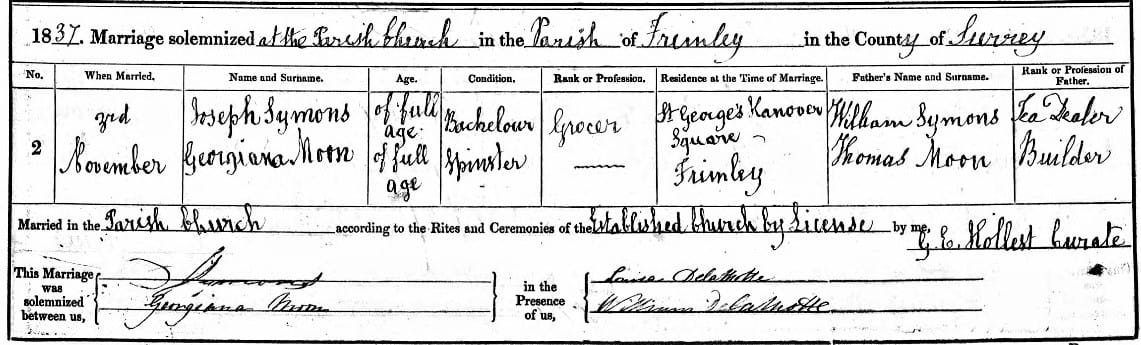 1837. Marriage solemnized at the Parish Church in the Parish of Frimley in the County of Surrey
No. When Married. Name and Surname. Age. Condition. Rank or Profession. Residence at the Time of Marriage. Father's Name and Surname. Rank or Profession of Father.
2
3rd
November
Joseph Symons
Georgiana Moon
of full
age
of full
age
Bachelour
Spinster
Grocer
St George's Hanover
Square
Frimley
William Symons
Thomas Moon
Tea Dealer
Builder
Married in the Parish Church according to the Rites and Ceremonies of the Established Church by License by me, G. E. Hollest Curate
This Marriage
was
solemnized
between us,
J Symons
Georgiana Moon
in the
Presence
of us,
Louisa DelaMotte
William DelaMotte